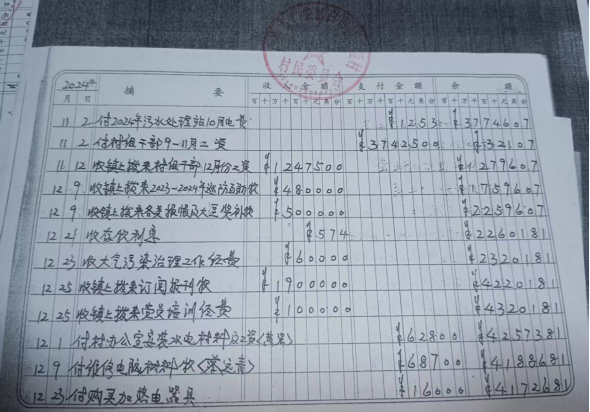 村民委员会
2024年 摘 要 收入金额 支付金额 余 额
月 日 百十万千百十元角分 百十万千百十元角分 百十万千百十元角分
11 2 付2024年污水处理站10月电费 ¥1253 ¥3774607
11 2 付村组干部9-11月工资 ¥3742500 ¥32107
11 12 收镇上拨来村组干部12月份工资 ¥1247500 ¥1279607
12 9 收镇上拨来2023-2024年巡防 ¥480000 ¥1759607
12 9 收镇上拨来各类报帐及大豆奖补款 ¥500000 ¥2259607
12 21 收存款利息 ¥574 ¥2260181
12 23 收大气污染治理工作经费 ¥60000 ¥2320181
12 25 收镇上拨来订阅报刊款 ¥1900000 ¥4220181
12 25 收镇上拨来党员培训经费 ¥100000 ¥4320181
12 1 付村办公室安装水电材料及工资 ¥62800 ¥4257381
12 9 付维修电脑材料款 ¥68700 ¥4188681
12 23 付购买加热电器具 ¥16000 ¥4172681